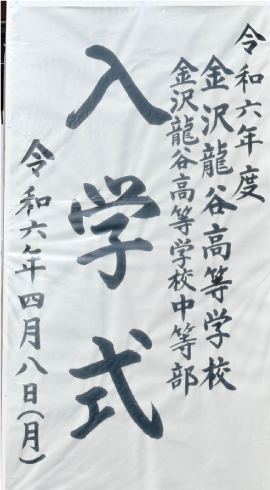 令和六年度
金沢龍谷高等学校
金沢龍谷高等学校中等部
入学式
令和六年四月八日(月)